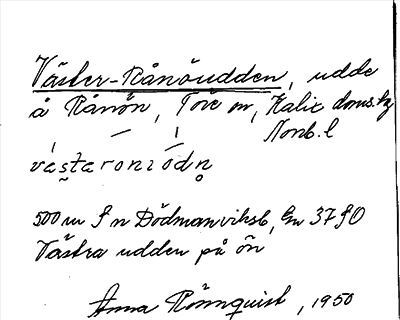 Väster-Rånöudden, udde
å Rånön, Töre sn, Kalix doms.hg
Norrb. l
västaronöodn
500 m S n Dödmansviksb, Gm 37 SO
Västra udden på ön
Anna Rönnquist, 1950